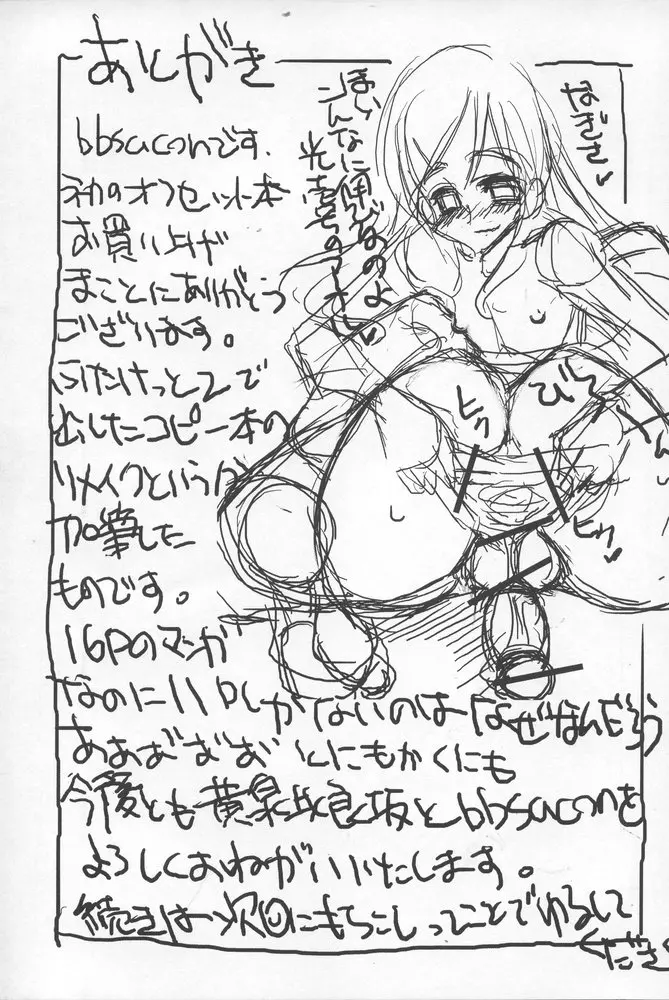 あとがき
bbsaconです.
初のオフセット本
お買い上げ
まことにありがとう
ございます。
ふたけっと2で
出したコピー本の
リメイクというか
加筆した
ものです。
16Pのマンガ
なのに11Pしかないのはなぜなんだろう
あぁおおお とにもかくにも
今後とも黄泉比良坂とbbsaconを
よろしくおねがいいたします。
続きは次回にもちこしってことでゆるして
ください
なぎさ♪
ほら
こんなに伸びるのよ
ヒク
ヒク